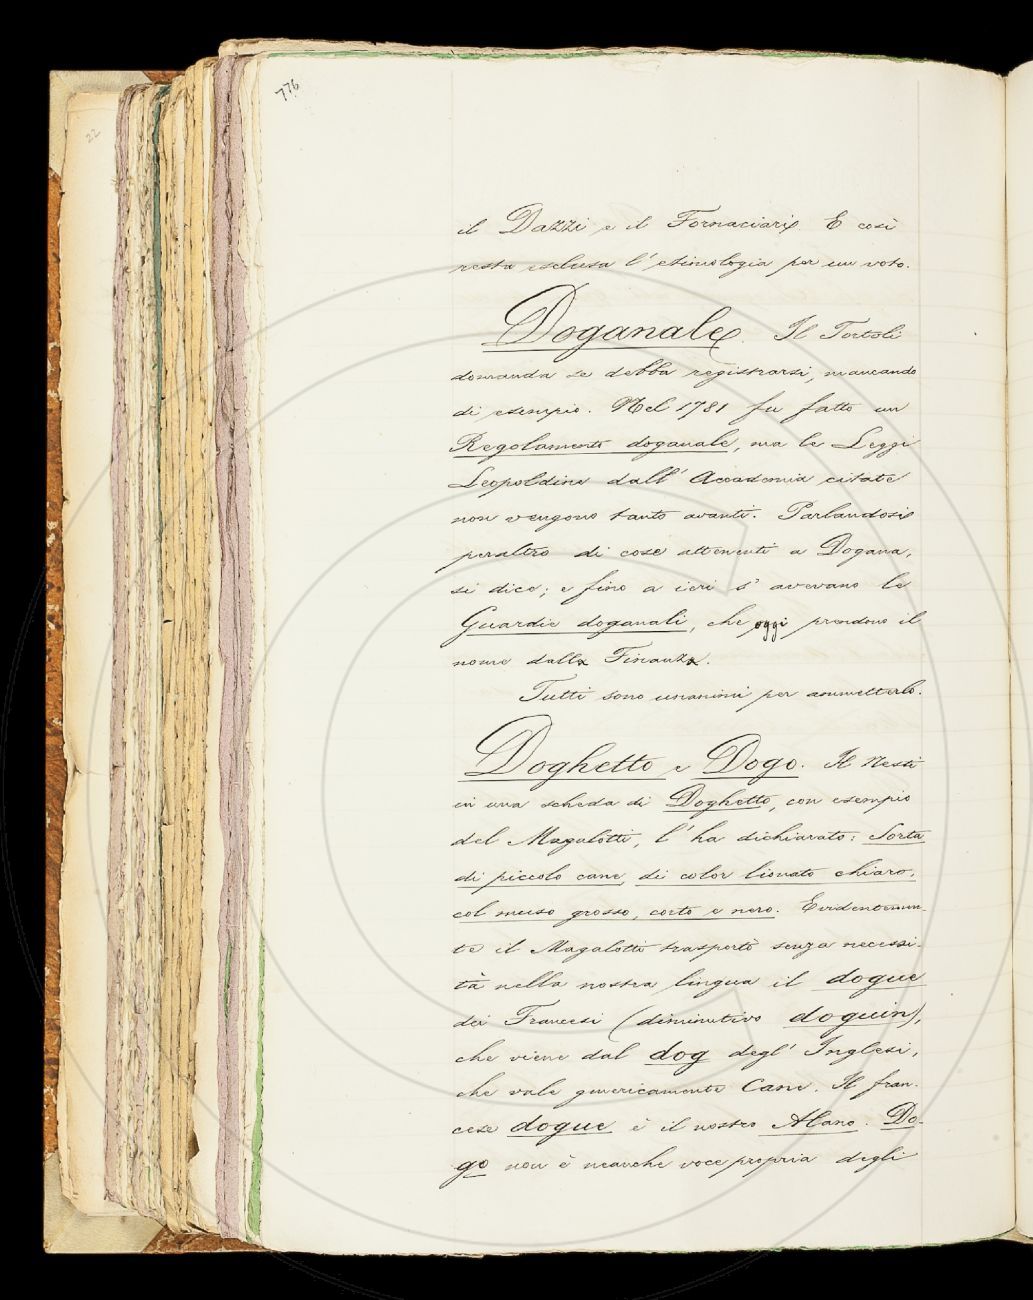 776
22
il Dazzi e il Fornaciari. E così
resta esclusa l'etimologia per un voto.
Doganale. Il Tortoli
domanda se debba registrarsi, mancando
di esempio. Nel 1781 fu fatto un
Regolamento doganale, ma le Leggi
Leopoldine dall'Accademia citate
non vengono tanto avanti. Parlandosi
peraltro di cose attenenti a Dogana,
si dice; e fino a ieri s'avevano le
Guardie doganali, che oggi prendono il
nome dalla Finanza.
Tutti sono unanimi per ammetterlo.
Doghetto e Dogo. Il Nesti
in una scheda di Doghetto, con esempio
del Magalotti, l'ha dichiarato: Sorta
di piccolo cane, di color lionato chiaro,
col muso grosso, corto e nero. Evidentemen-
te il Magalotti trasportò senza necessi-
tà nella nostra lingua il dogue
dei Francesi (diminutivo doguin),
che viene dal dog degl'Inglesi,
che vale genericamente Cane. Il fran-
cese dogue è il nostro Alano. Do-
go non è neanche voce propria degli